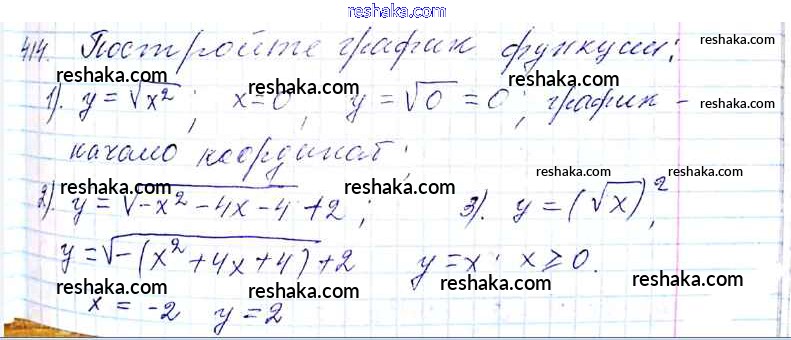 reshaka.com
414. Постройте график функции: reshaka.com
reshaka.com reshaka.com reshaka.com
1). y = √x²; x=0, y = √0 = 0; график - reshaka.com
начало координат; reshaka.com reshaka.com
reshaka.com reshaka.com
2). y = √-x² - 4x - 4 + 2; 3). y = (√x)²,
reshaka.com reshaka.com reshaka.com
y = √-(x² + 4x + 4) + 2 y = x; x ≥ 0.
reshaka.com reshaka.com reshaka.com
x = -2 y = 2
reshaka.com reshaka.com reshaka.com